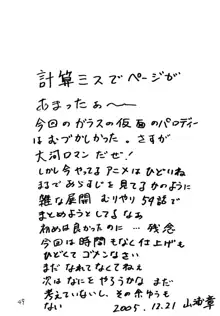 計算ミスでページが
あまったぁ〜
今回のガラスの仮面のパロディー
はむづかしかった。さすが
大河ロマンだぜ!
しかし今やってるアニメはひどいね
まるであらすじを見てるかのように
雑な展開 むりやり54話で
まとめようとしてるな
初めは良かったのに…残念
今回は時間もなく仕上げも
ひどくてゴメンなさい
まだなれてなくてねぇ
次はなにをやろうかな まだ
考えていないし、その余ゆうも
ない 2005.12.21
49